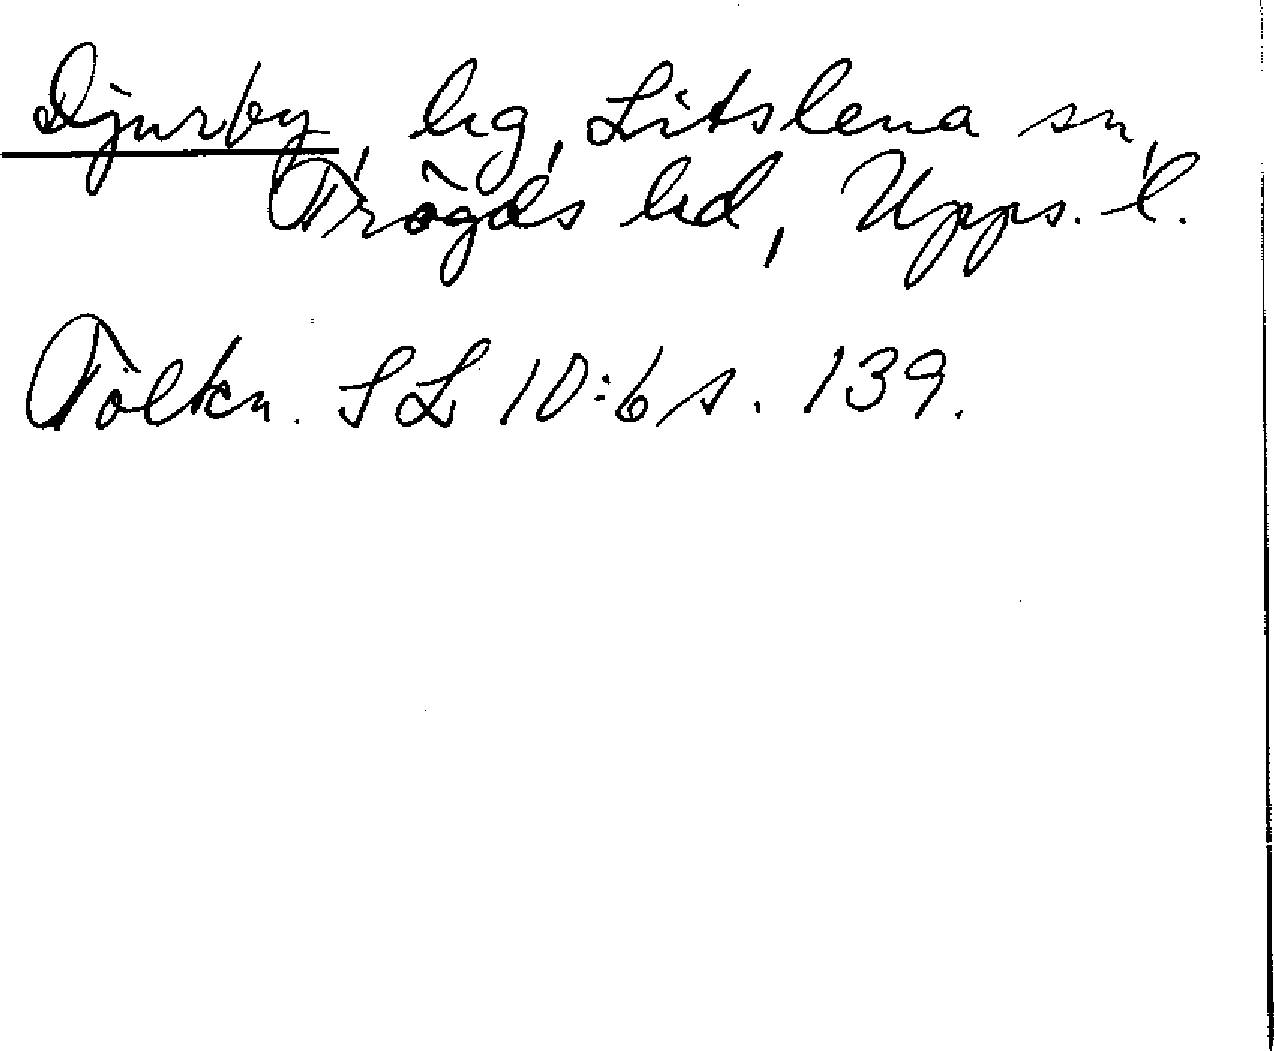 Djurby, hg, Litslena sn,
Trögds hd, Upps. l.
Tolkn. SL 10:6 s. 139.